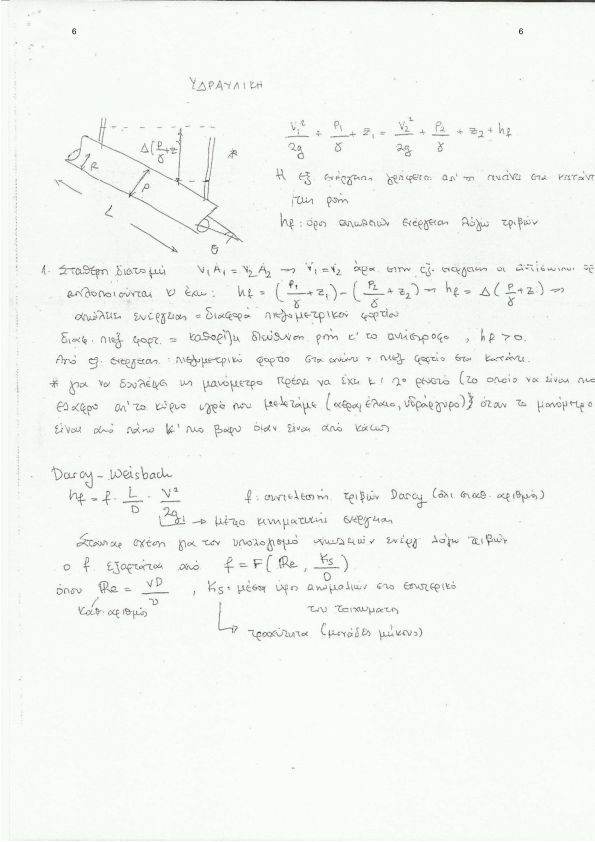 6 6
ΥΔΡΑΥΛΙΚΗ
V₁²/2g + P₁/γ + z₁ = V₂²/2g + P₂/γ + z₂ + hf
Δ(P/γ+z) *
R
D
L
θ
Η εξ. ενέργειας γράφεται απ' τα ανάντι στα κατάντι
της ροής
hf : όρος απωλειών ενέργειας λόγω τριβών
1. Σταθερή διατομή V₁A₁ = V₂A₂ → V₁ = V₂ άρα στην εξ. ενέργειας οι
απλοποιούνται κ' έχω: hf = (P₁/γ + z₁) - (P₂/γ + z₂) → hf = Δ(P/γ + z) →
απώλεια ενέργειας = διαφορά πιεζομετρικού φορτίου
διαφ. πιεζ. φορτ. = καθορίζει διεύθυνση ροής κ' το αντίστροφο, hf > 0.
Από εξ. ενέργειας: πιεζομετρικό φορτίο στα ανάντι + πιεζ φορτίο στα κατάντι.
* για να δουλέψει τη μανόμετρο πρέπει να έχει κ' 2ο ρευστό (το οποίο να είναι πιο
ελαφρύ απ' το κύριο υγρό που μελετάμε (αέρας, έλαιο, υδράργυρο)} όταν το μανόμετρο
είναι από πάνω κ' πιο βαρύ όταν είναι από κάτω
Darcy - Weisbach
hf = f · L/D · V²/2g f : συντελεστή τριβών Darcy (όχι σταθ. αριθμός)
→ μέτρο κινηματικής ενέργειας
σχέση για τον υπολογισμό απωλειών ενέργ λόγω τριβών
ο f εξαρτάται από f = F(Re, Ks/D)
όπου Re = VD/υ , Ks = μέσο ύψος ανωμαλιών στο εσωτερικό
αριθμός του τοιχώματος
→ τραχύτητα (μονάδες μήκους)